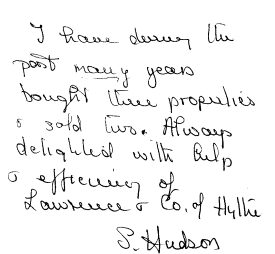 I have during the
past many years
bought three properties
& sold two. Always
delighted with help
& efficiency of
Lawrence & Co. of Hythe
S. Hudson